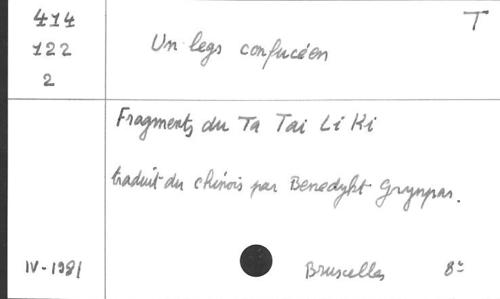 414
122
2
Un legs confucéen
T
Fragments du Ta Tai Li Ki
traduit du chinois par Benedykt Grynpas.
IV-1981
Bruxelles 8º